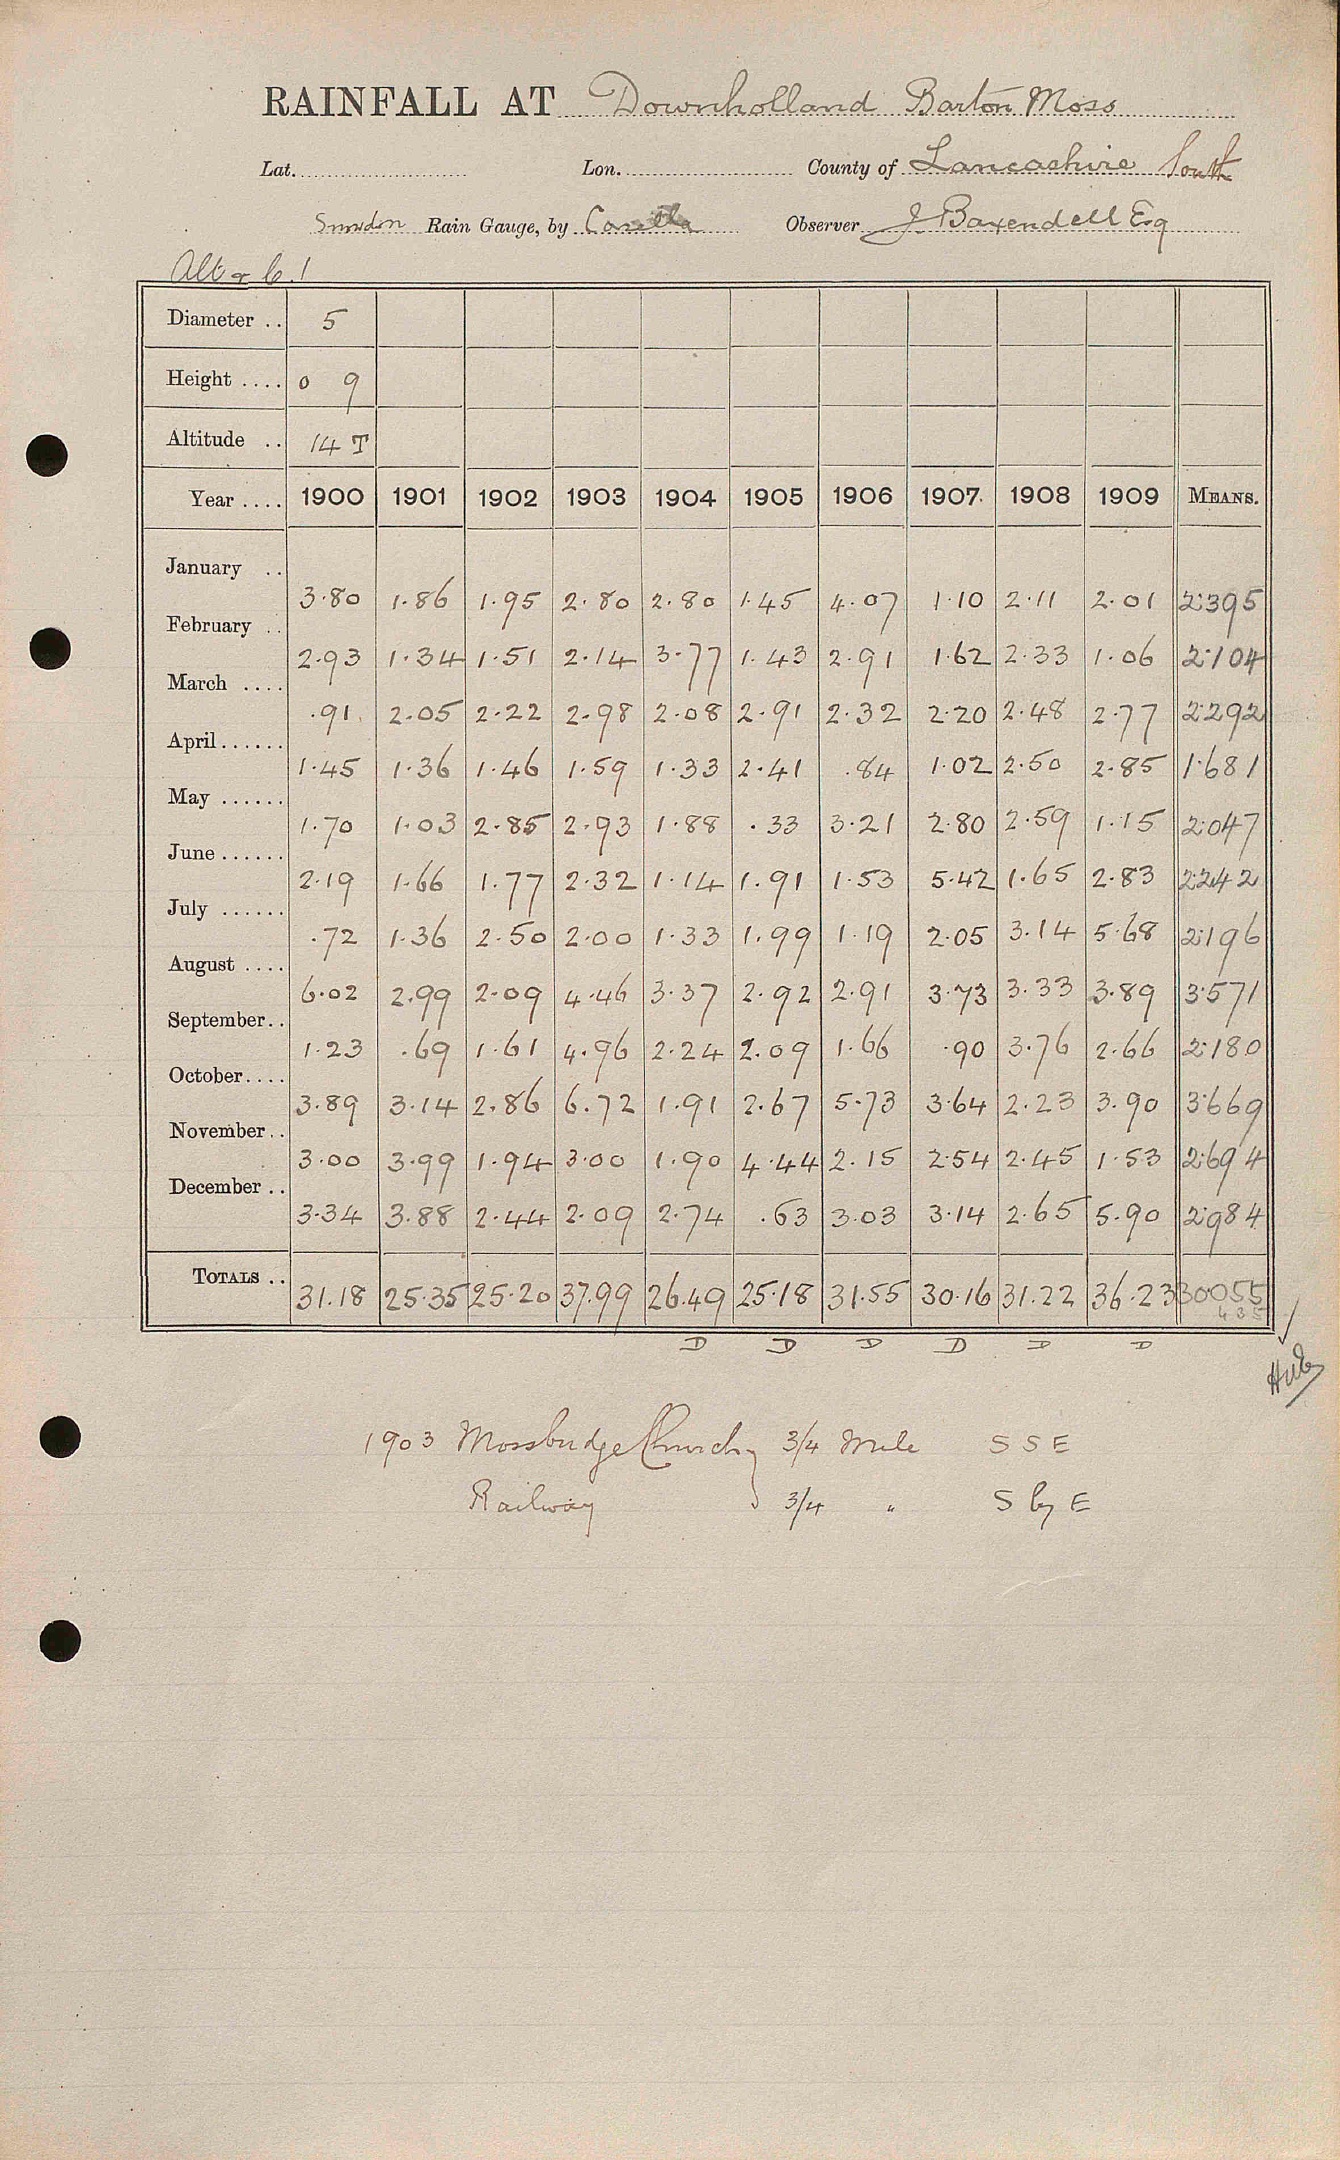 RAINFALL AT Downholland Barton Moss
Lat. Lon. County of Lancashire South
Snowdon Rain Gauge, by Casella Observer J. Baxendell Esq
Alt & 6.1
Diameter .. 5
Height .... 0 9
Altitude .. 14 T
Year .... 1900 1901 1902 1903 1904 1905 1906 1907. 1908 1909 MEANS.
January .. 3.80 1.86 1.95 2.80 2.80 1.45 4.07 1.10 2.11 2.01 2.395
February .. 2.93 1.34 1.51 2.14 3.77 1.43 2.91 1.62 2.33 1.06 2.104
March .... .91 2.05 2.22 2.98 2.08 2.91 2.32 2.20 2.48 2.77 2.292
April...... 1.45 1.36 1.46 1.59 1.33 2.41 .84 1.02 2.50 2.85 1.681
May ...... 1.70 1.03 2.85 2.93 1.88 .33 3.21 2.80 2.59 1.15 2.047
June...... 2.19 1.66 1.77 2.32 1.14 1.91 1.53 5.42 1.65 2.83 2.242
July ...... .72 1.36 2.50 2.00 1.33 1.99 1.19 2.05 3.14 5.68 2.196
August .... 6.02 2.99 2.09 4.46 3.37 2.92 2.91 3.73 3.33 3.89 3.571
September.. 1.23 .69 1.61 4.96 2.24 2.09 1.66 .90 3.76 2.66 2.180
October.... 3.89 3.14 2.86 6.72 1.91 2.67 5.73 3.64 2.23 3.90 3.669
November.. 3.00 3.99 1.94 3.00 1.90 4.44 2.15 2.54 2.45 1.53 2.694
December .. 3.34 3.88 2.44 2.09 2.74 .63 3.03 3.14 2.65 5.90 2.984
TOTALS .. 31.18 25.35 25.20 37.99 26.49 25.18 31.55 30.16 31.22 36.23 30055
435
D D D D D D
1903 Mossbridge Church 3/4 Mile S S E
Railway 3/4 " S by E